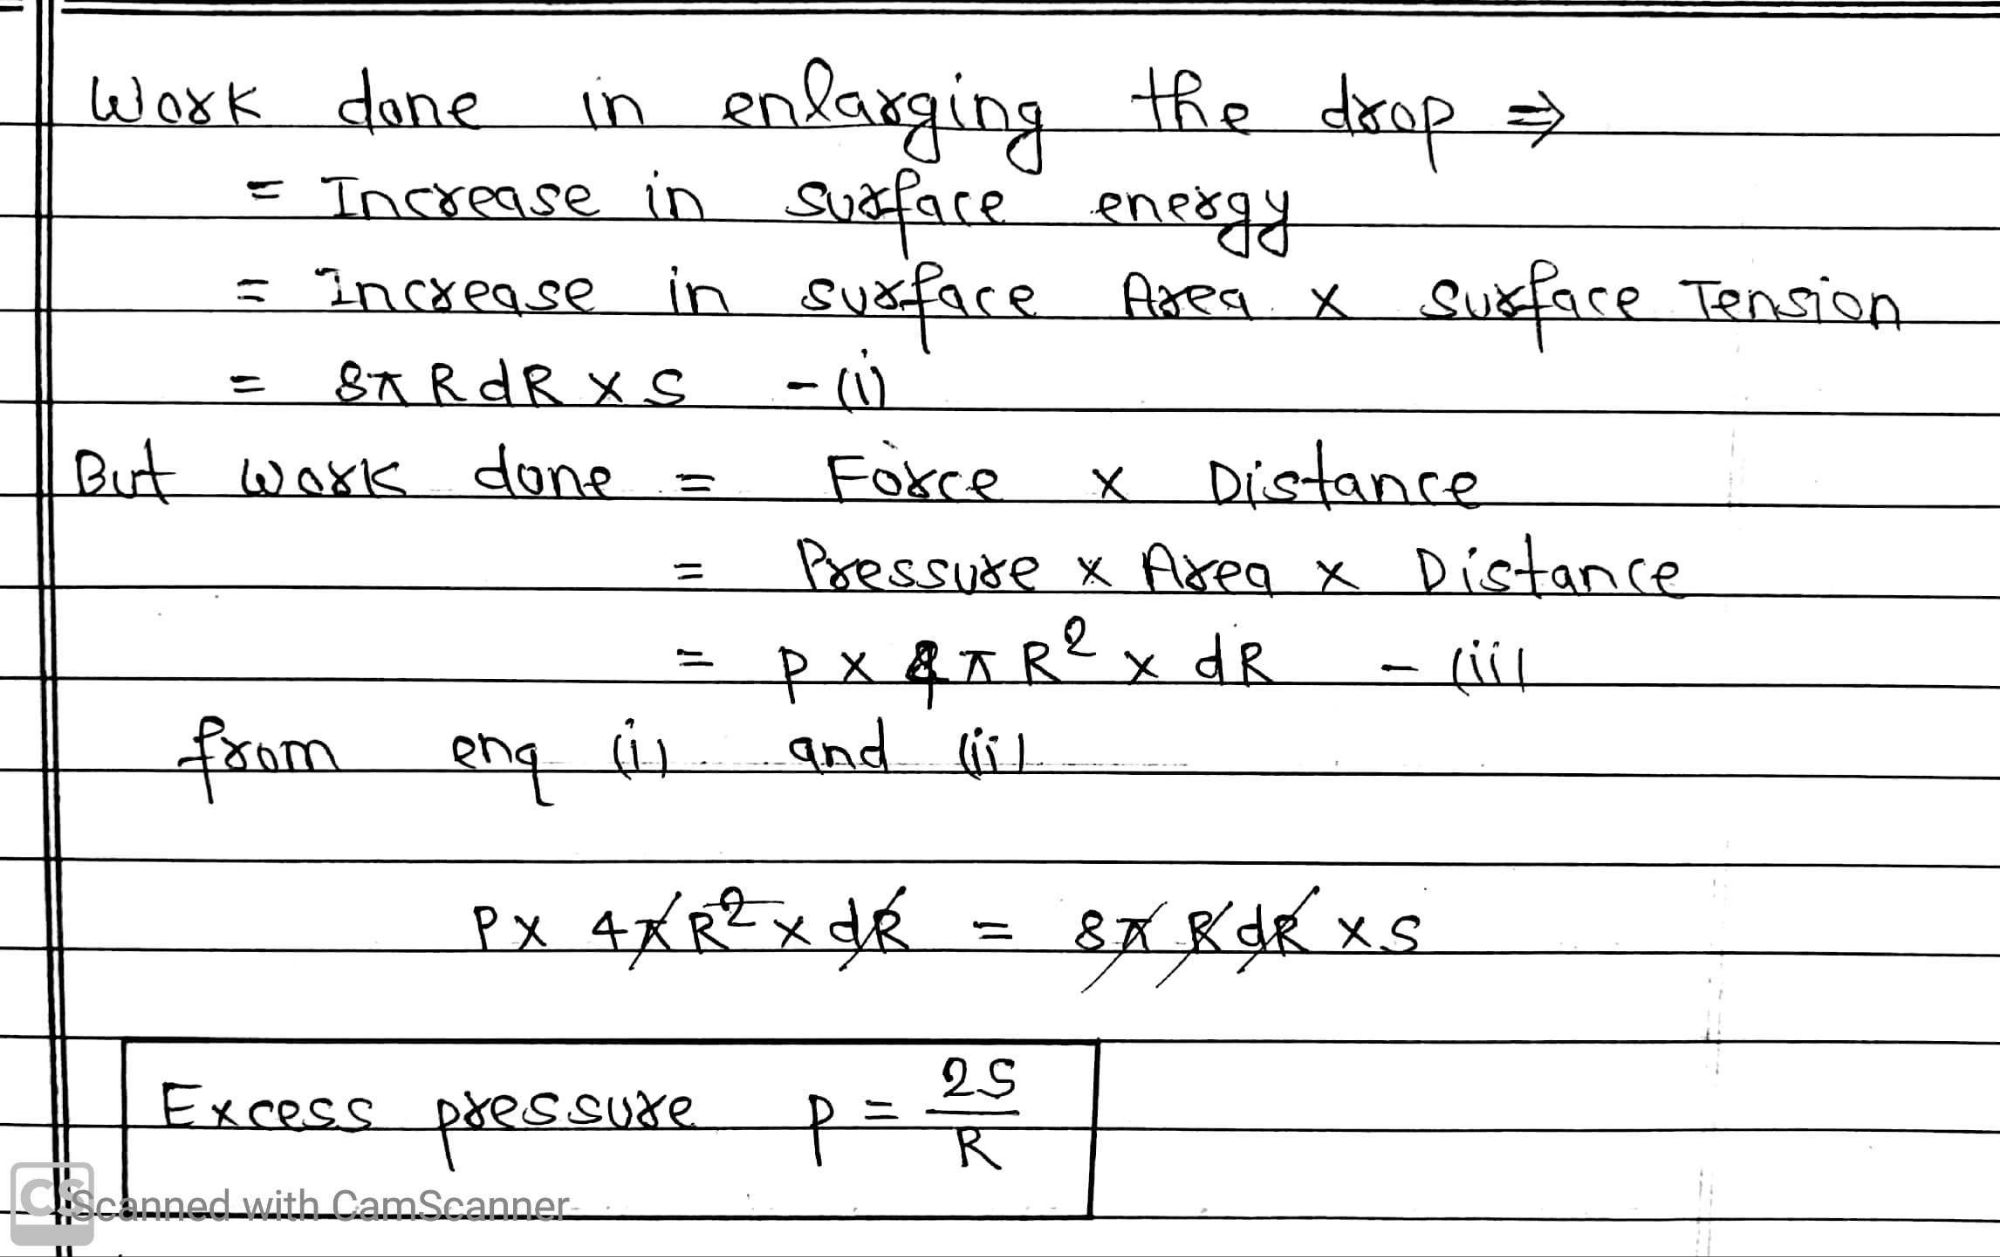 Work done in enlarging the drop ⇒
= Increase in surface energy
= Increase in surface Area x surface Tension
= 8π R dR x S - (i)
But work done = Force x Distance
= Pressure x Area x Distance
= p x 4π R² x dR - (ii)
from enq (i) and (ii)
P x 4π R² x dR = 8π R dR x S
Excess pressure p = 2S / R
CS Scanned with CamScanner